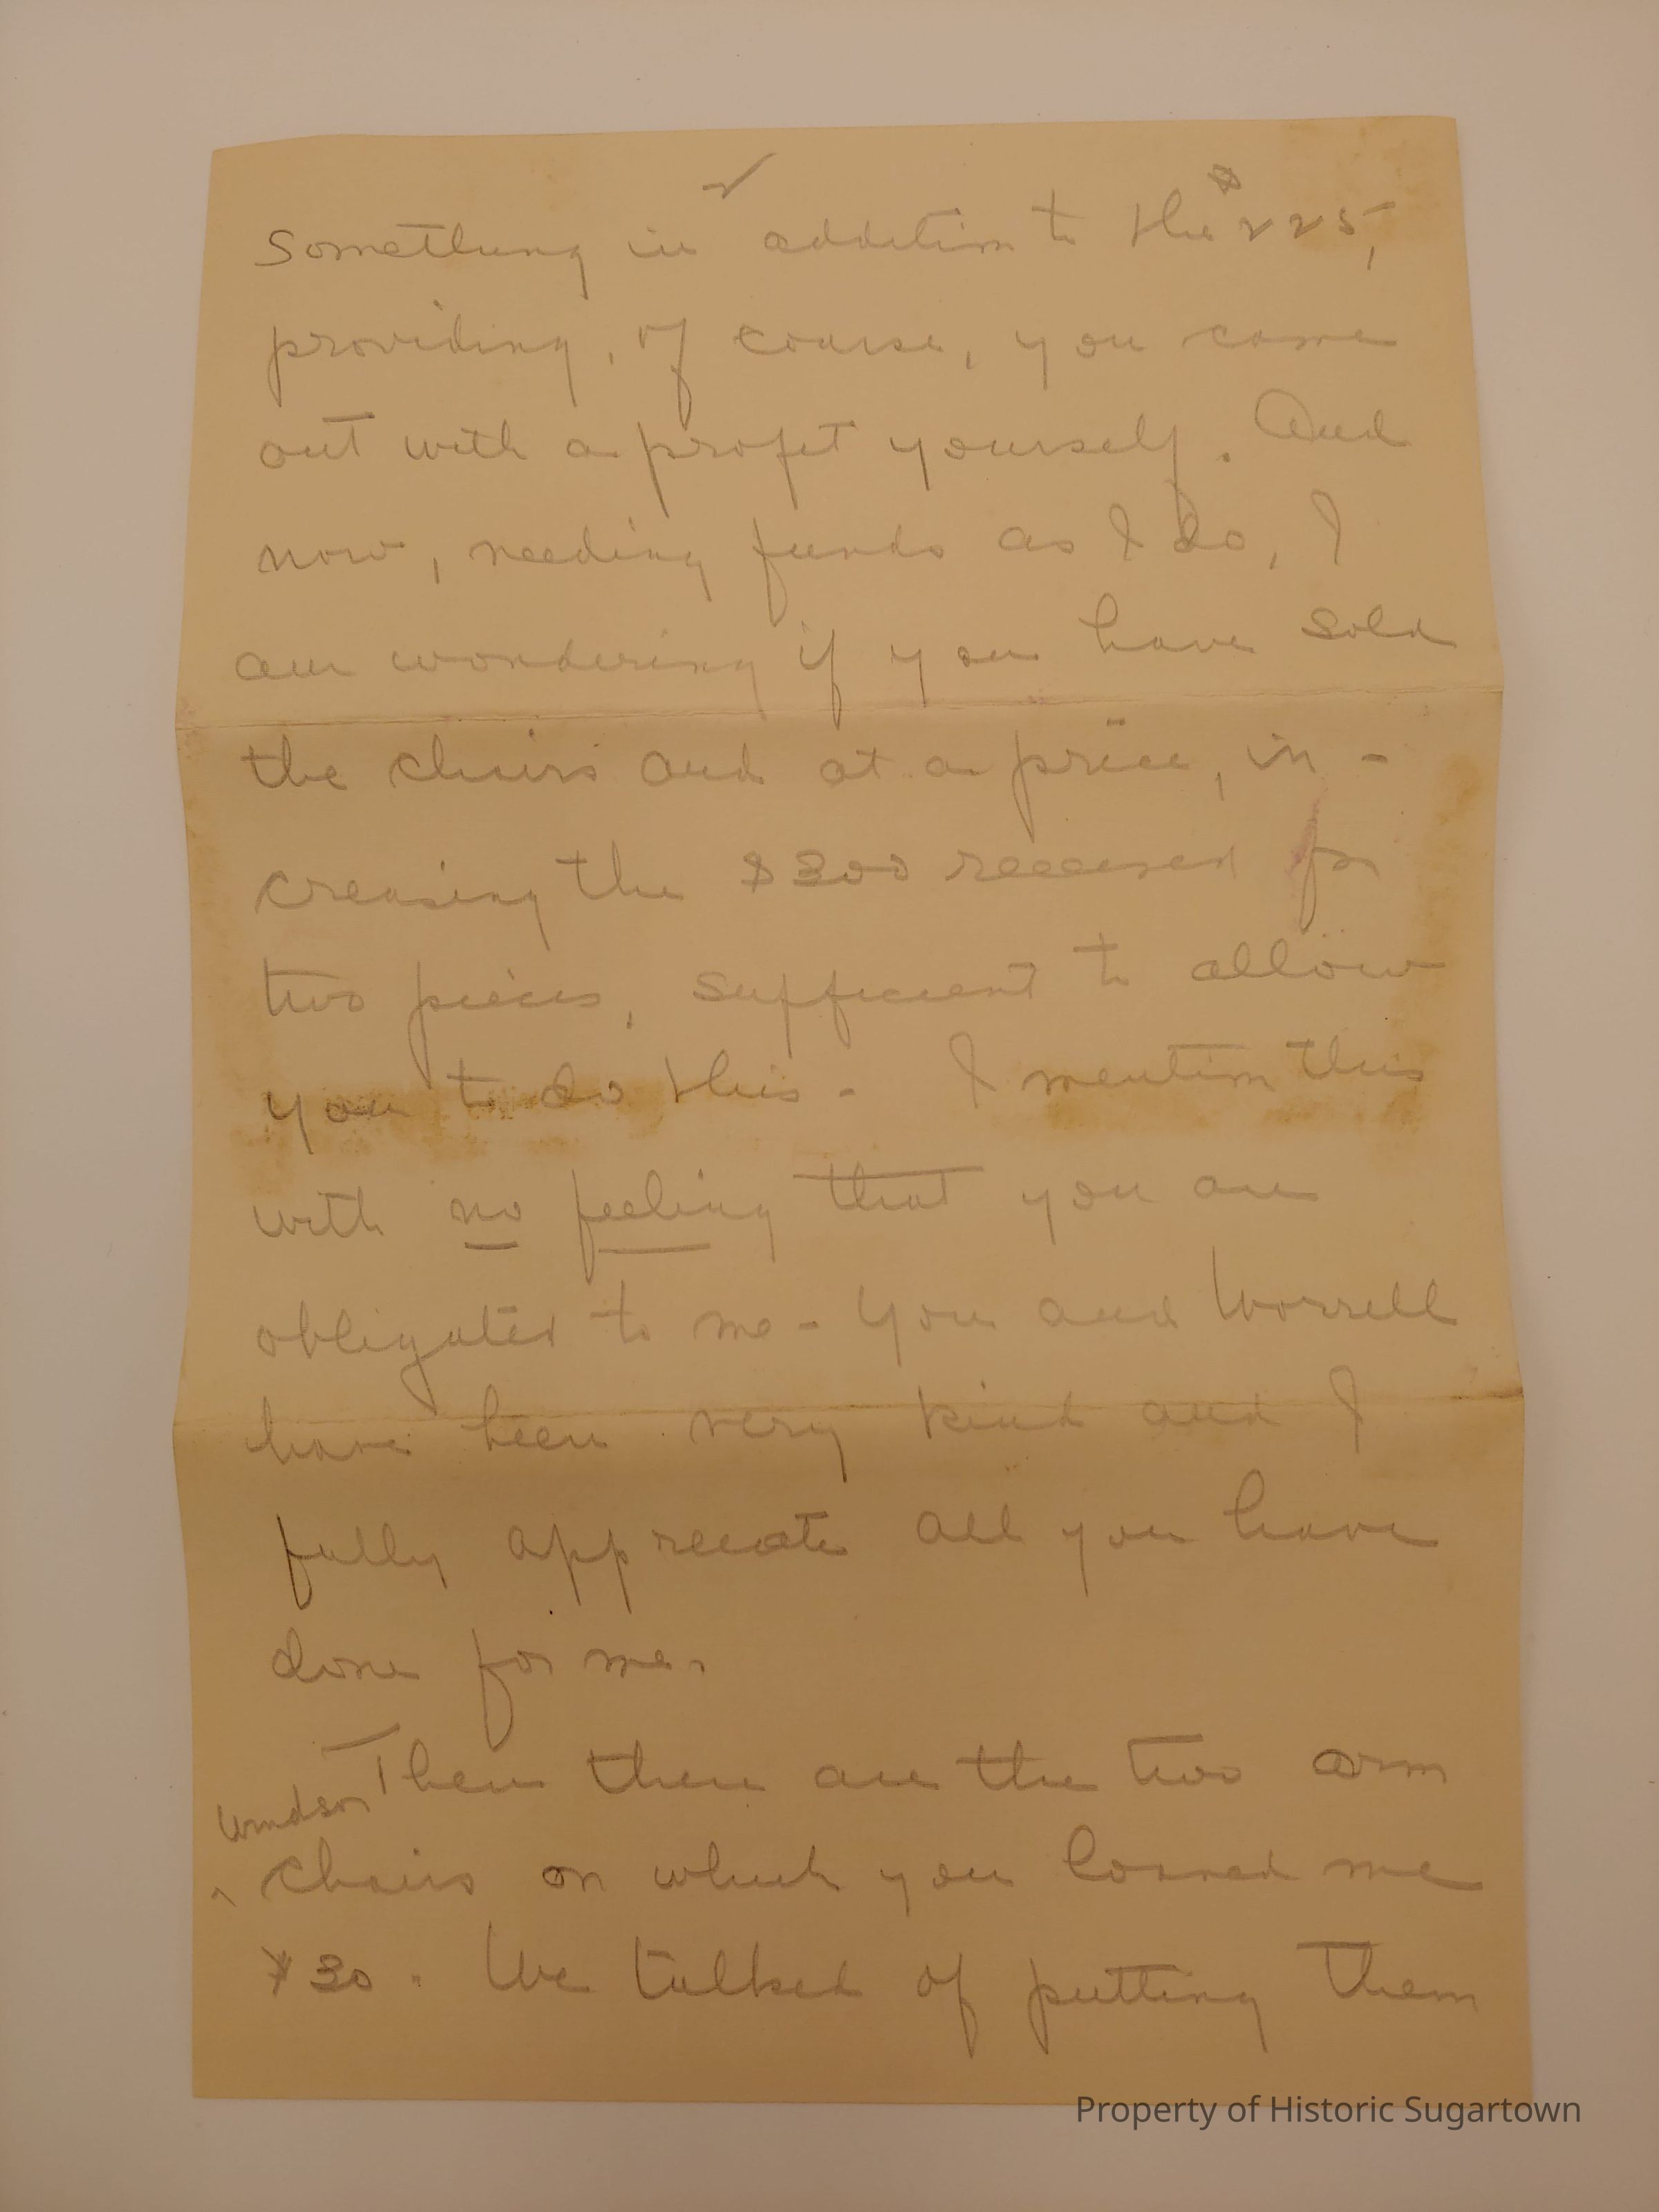 Something in addition to the $225,
providing, of course, you came
out with a profit yourself. And
now, needing funds as I do, I
am wondering if you have sold
the chairs and at a price, in-
creasing the $300 received for
two pieces, sufficient to allow
you to do this - I mention this
with no feeling that you are
obligated to me - You and Worrell
have been very kind and I
fully appreciate all you have
done for me.
Then there are the two arm
Windsor
^ chairs on which you loaned me
$30. We talked of putting them
Property of Historic Sugartown